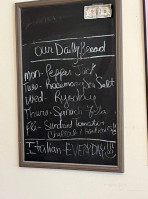 Our Daily Bread
Mon- Pepper Jack
Tues- Rosemary Sea Salt
Wed-
Thurs- Spinach Feta
Fri- Sundried Tomato
Italian EVERYDAY!!!